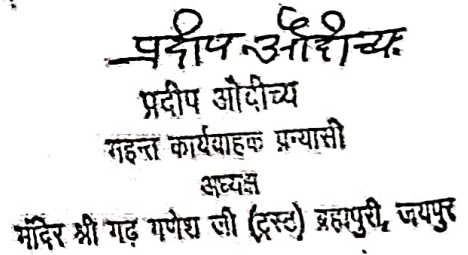 प्रदीप औदीच्य
प्रदीप औदीच्य
महन्त कार्यवाहक प्रन्यासी
अध्यक्ष
मंदिर श्री गढ़ गणेश जी (ट्रस्ट) ब्रह्मपुरी, जयपुर